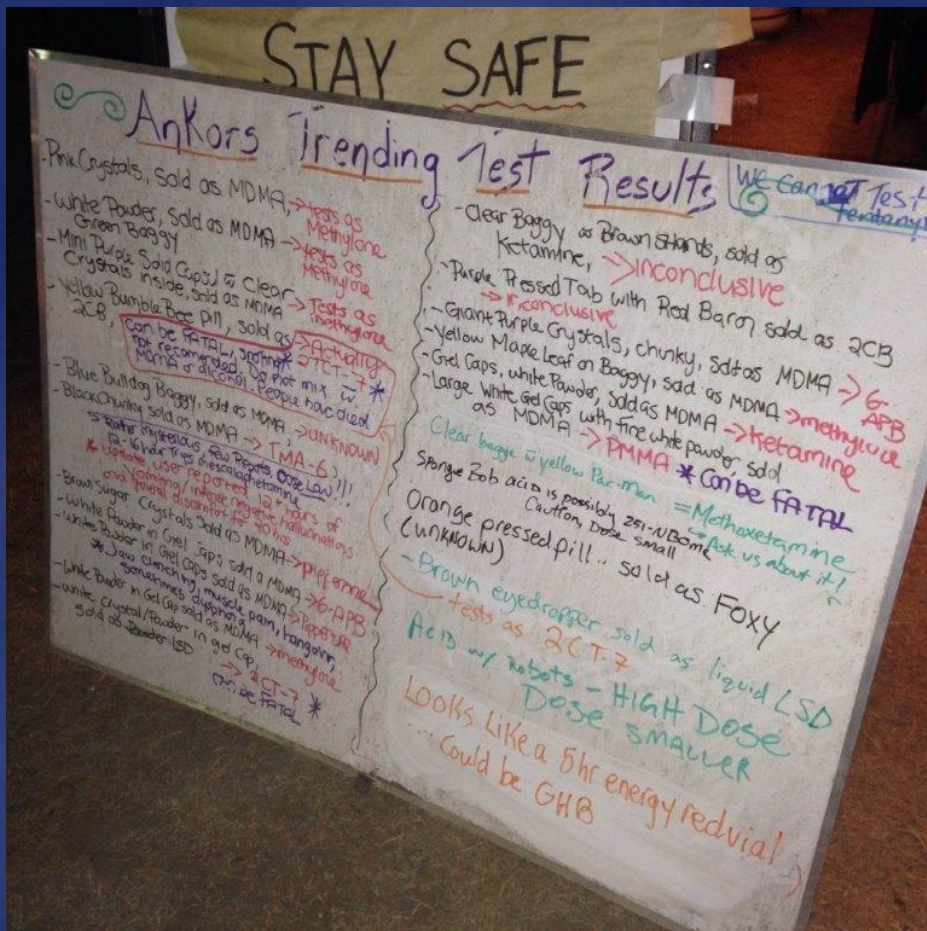 STAY SAFE
Ankors Trending Test Results
We Cannot Test
fentanyl
-Pink Crystals, sold as MDMA, → tests as
Methylone
-White Powder, sold as MDMA → tests as
Green Baggy Methylone
-Mini Purple Solid Caps w clear
Crystals inside, sold as MDMA → Tests as
methylone
-Yellow Bumble Bee pill, sold as → Actually
2CB, 2TCT-7 *
Can be FATAL, snorting *
not recomended, Do not mix w
MDMA or alcohol. People have died
-Blue Bulldog Baggy, sold as MDMA, → UNKNOWN
-Black Chunky sold as MDMA → TMA-6,
→ Rather mysterious, few Reports, Dose Low!!!
12-16 hour trips mescalaphetamine
* update user reported 12+ hours of
vomiting/intense negative hallucinations
and general discomfort for 40 hrs
-Brown Sugar Crystals Sold as MDMA → piperazine
-White Powder in Gel Caps sold as MDMA → 6-APB
-White Powder in Gel caps sold as MDMA →
* Jaw clenching, muscle pain, hangover,
sometimes dysphoria
-White Powder in Gel Cap sold as MDMA → methylone
-White Crystal/Powder in gel cap,
sold as LSD → 2CT-7 *
Can be FATAL
-Clear Baggy w Brown Shards, sold as
Ketamine, → Inconclusive
-Purple Pressed Tab with Red Baron sold as 2CB
→ Inconclusive
-Giant Purple Crystals, chunky, sold as MDMA → 6-
APB
-Yellow Maple Leaf on Baggy, sold as MDMA → methylone
-Gel Caps, white Powder, sold as MDMA → Ketamine
-Large White Gel Caps with fine white powder, sold
as MDMA → PMMA * Can be FATAL
Clear baggie w yellow Pac-man = Methoxetamine
→ Ask us about it!
Sponge Bob acid is possibly 25I-NBOme
Caution, Dose small
Orange pressed pill.. sold as FOXY
(UNKNOWN)
-Brown eyedropper sold as liquid LSD
tests as 2CT-7
Acid w/ Robots - HIGH DOSE
DOSE SMALLER
Looks Like a 5hr energy red vial
... could be GHB